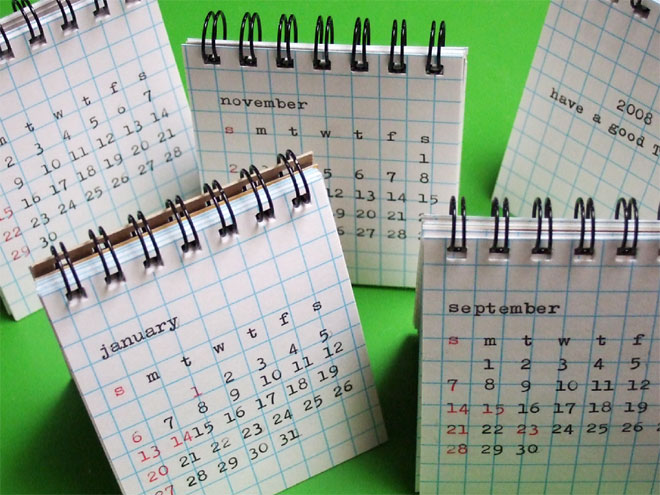 m t w t f s
2 3 4 5 6 7
9 10 11 12 13 14
15 16 17 18 19 20 21
22 23 24 25 26 27 28
29 30
november
s m t w t f s
1
2 5 6 7 8
12 13 14 15
19 20 21
26 27 28
2008
have a good
january
s m t w t f s
1 2 3 4 5
6 7 8 9 10 11 12
13 14 15 16 17 18 19
20 21 22 23 24 25 26
27 28 29 30 31
september
s m t w t f
1 2 3 4 5
7 8 9 10 11 12
14 15 16 17 18 19
21 22 23 24 25 26
28 29 30